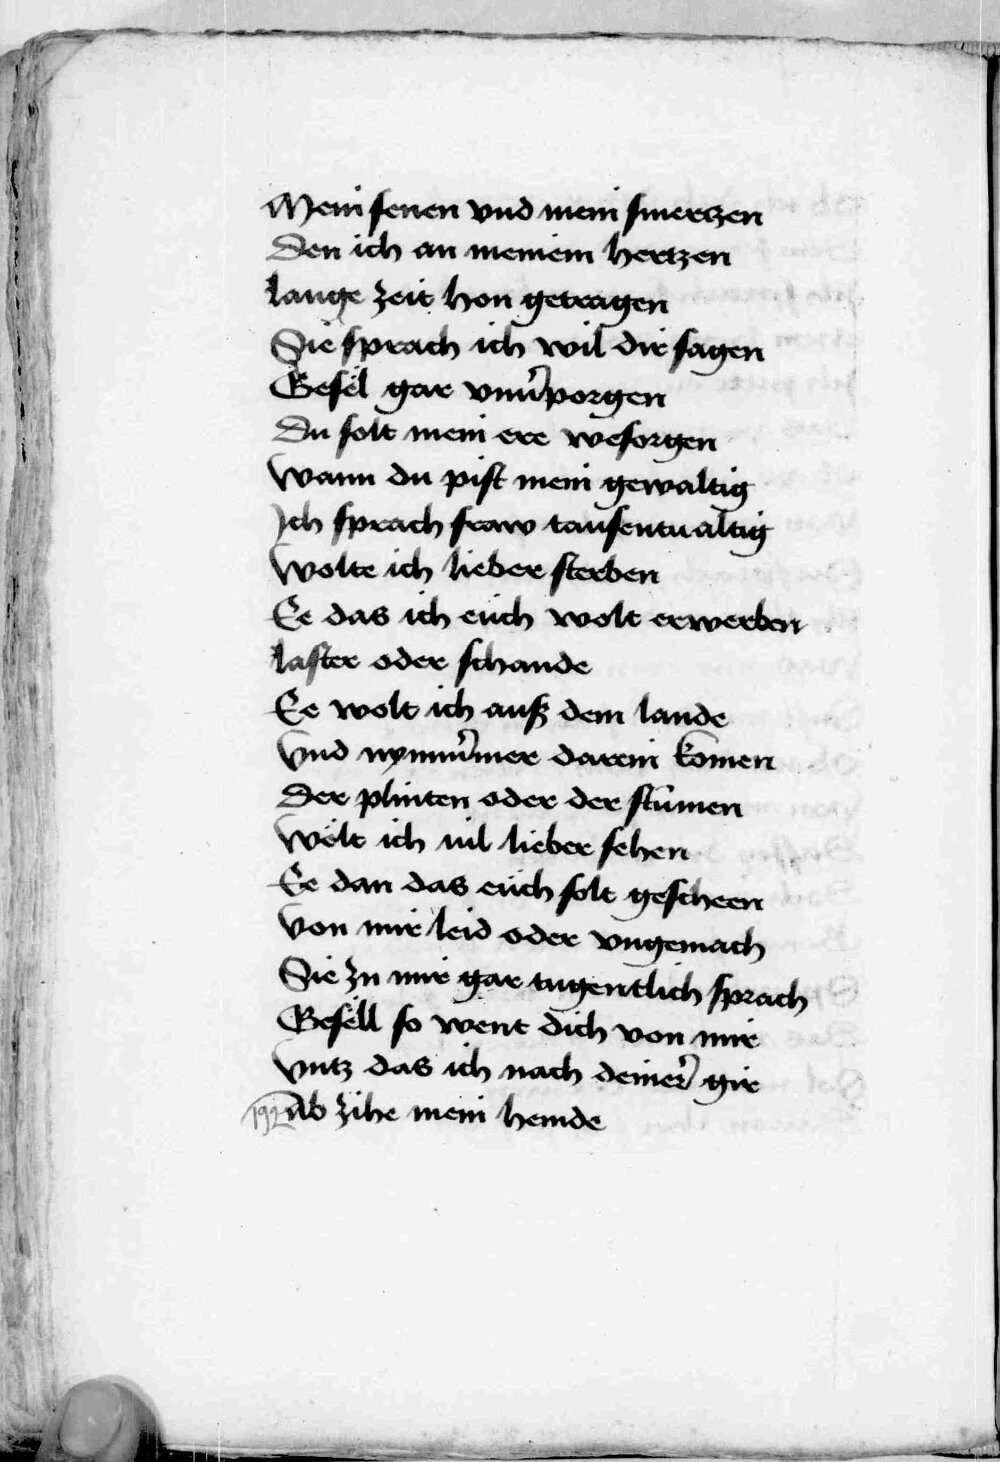 Mein senen vnd mein smerczen
Den ich an meinem hertzen
lange zeit hon getragen
Sie sprach ich wil dir sagen
Gesel gar vnuerporgen
Du solt mein ere wesorgen
Wann du pist mein gewaltig
Ich sprach fraw tausentualtig
Wolte ich lieber sterben
Ee das ich euch wolt erwerben
laster oder schande
Ee wolt ich auß dem lande
Vnd nymmermer darein komen
Der plinten oder der stůmen
Wölt ich vil lieber sehen
Ee dan das euch solt gescheen
Von mir leid oder vngemach
Sie zu mir gar tugentlich sprach
Gesell so went dich von mir
Vntz das ich nach deiner gir
Ab zihe mein hemde